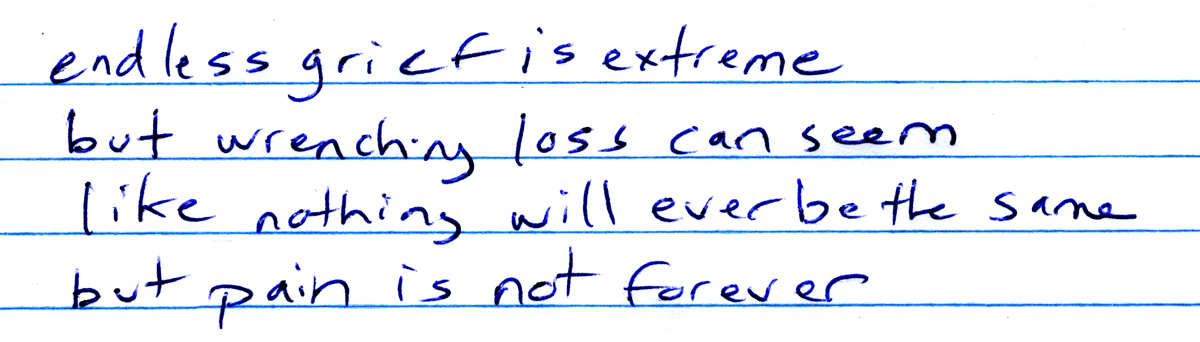 endless grief is extreme
but wrenching loss can seem
like nothing will ever be the same
but pain is not forever